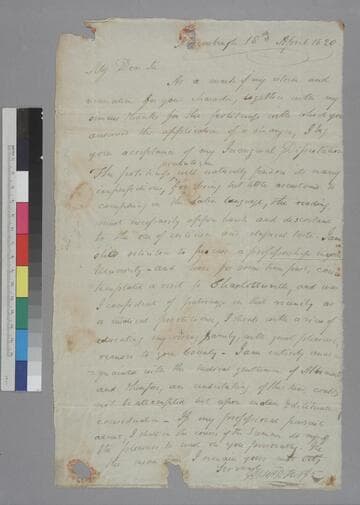 18th April 1820
My Dear Sir
As a mark of my esteem and
for your character, together with my
sincere thanks for the politeness with which you
answered the application of a stranger, I beg
your acceptance of my Inaugural Dissertation
The politeness will naturally pardon its many
imperfections, for being but little accustomed to
composing in the Latin language, the reading
must necessarily appear harsh and discordant
to the ear of criticism and classical taste. I am
solicitous to procure a professorship in your
University and have for some time past, contemplated a visit to Charlottesville, and were
I confident of patronage in that vicinity as
a medical practitioner, I should with a view of
educating my young family, with great pleasure,
remove to your County - I am entirely unacquainted with the medical gentlemen of Albemarle
and therefore, an undertaking of this kind could
not be attempted but upon mature & deliberate
consideration - If my professional pursuits
admit, I shall in the course of the Summer do myself
the pleasure to wait on you personally. In
the mean time I remain yours
Servant